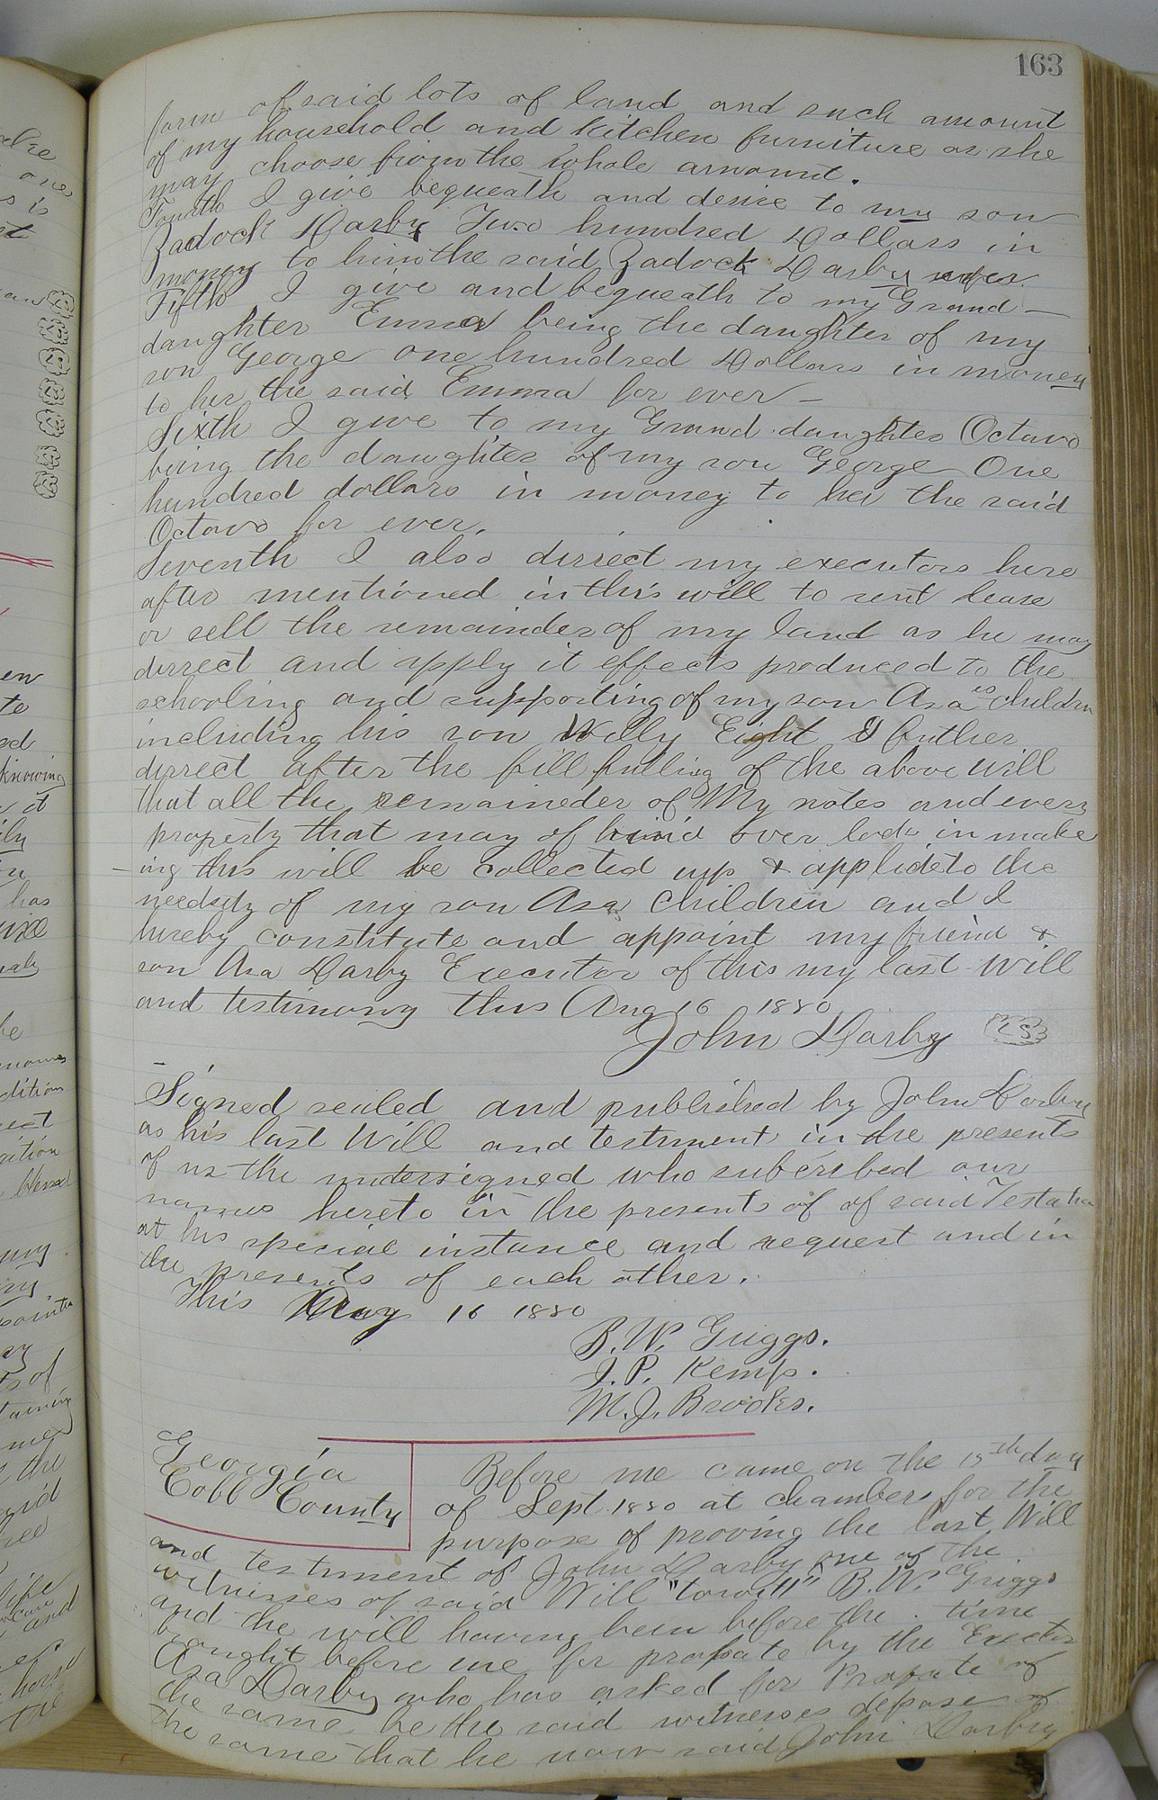 163
farm of said lots of land and such amount
of my household and kitchen furniture as she
may choose from the whole amount.
Fourth I give bequeath and desire to my son
Zadock Darby Two hundred Dollars in
money to him the said Zadock Darby
Fifth I give and bequeath to my Grand—
daughter Emma being the daughter of my
son George one hundred Dollars in money
to her the said Emma for ever—
Sixth I give to my Grand daughter Octavo
being the daughter of my son George One
hundred dollars in money to her the said
Octavo for ever.
Seventh I also dirrect my executors here
after mentioned in this will to rent lease
or sell the remainder of my land as he may
dirrect and apply it effects produced to the
schooling and supporting of my son Asa es children
including his son Willy Eight I futher
dirrect after the fill fulling of the above will
that all the remaineder of My notes and every
property that may of bin'd over look in make
-ing this will be collected up & applide to the
needsty of my son Asa Children and I
hereby constitute and appoint my friend &
son Asa Darby Executor of this my last Will
and testimony this Aug 16 1880
John Darby (LS)
Signed sealed and published by John Darby
as his last Will and testment in the presents
of us the undersigned who subcribed our
names hereto in the presents of of said Testator
at his special instance and request and in
the presents of each other.
This Aug 16 1880
B. W. Griggs.
J. P. Kemp.
M. J. Brooks.
Georgia
Cobb County
Before me came on the 15th day
of Sept 1880 at chambers for the
purpose of proving the last Will
and testment of John Darby one of the
witnesses of said Will "towitt" B. W. Griggs
and the will having been before the time
brought before me for probate by the Exector
Asa Darby who has asked for Probate of
the same he the said witnesses depose of
the same that he saw said John Darby